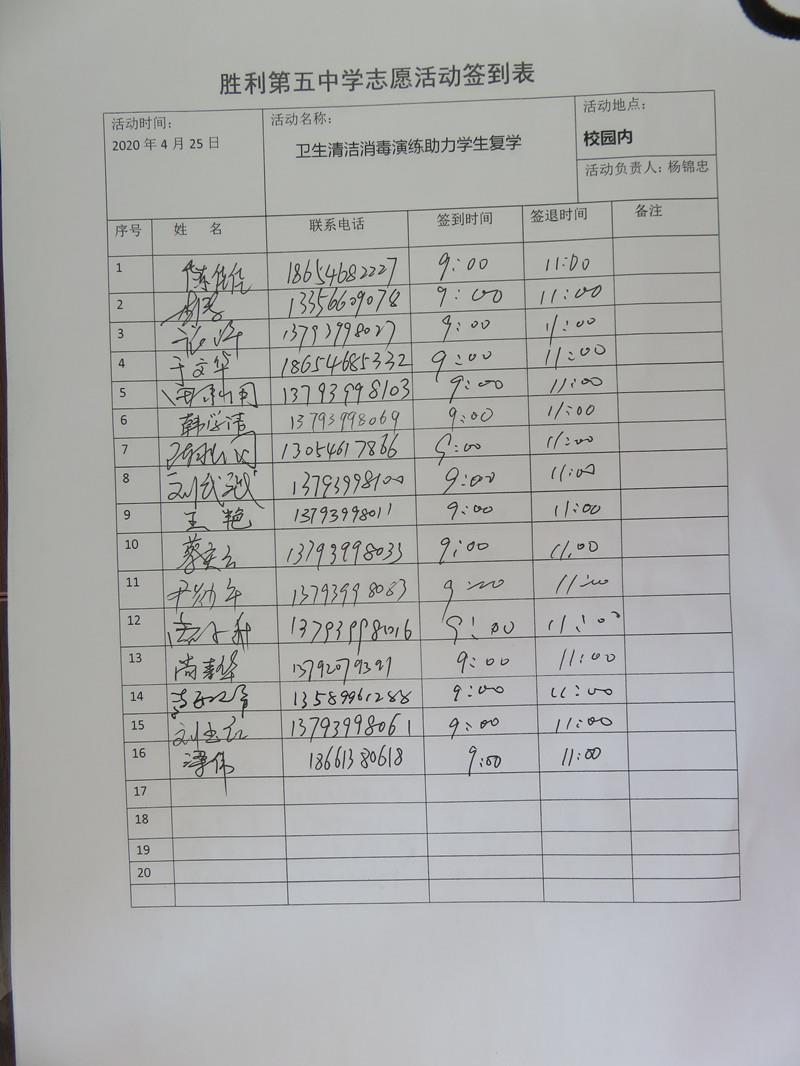 胜利第五中学志愿活动签到表
活动时间: 活动名称: 活动地点:
2020 年 4 月 25 日 卫生清洁消毒演练助力学生复学 校园内
活动负责人: 杨锦忠
序号 姓 名 联系电话 签到时间 签退时间 备注
1 18654682227 9:00 11:00
2 13356609078 9:00 11:00
3 13793998027 9:00 11:00
4 于文华 18654685332 9:00 11:00
5 13793998103 9:00 11:00
6 韩学清 13793998069 9:00 11:00
7 13054617866 9:00 11:00
8 刘武强 13793998100 9:00 11:00
9 王艳 13793998011 9:00 11:00
10 13793998033 9:00 11:00
11 13793998083 9:00 11:00
12 13793998016 9:00 11:00
13 尚春华 13792079391 9:00 11:00
14 13589961288 9:00 11:00
15 刘志红 13793998061 9:00 11:00
16 谭伟 18661380618 9:00 11:00
17
18
19
20